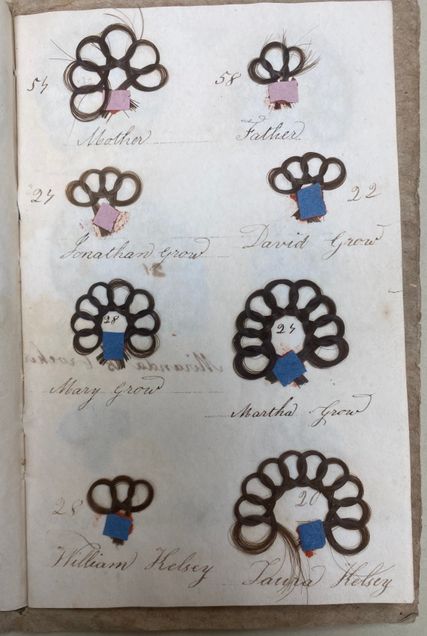 54 58
Mother Father
24 22
Jonathan Grow David Grow
28 24
Mary Grow Martha Grow
28 20
William Kelsey Laura Kelsey